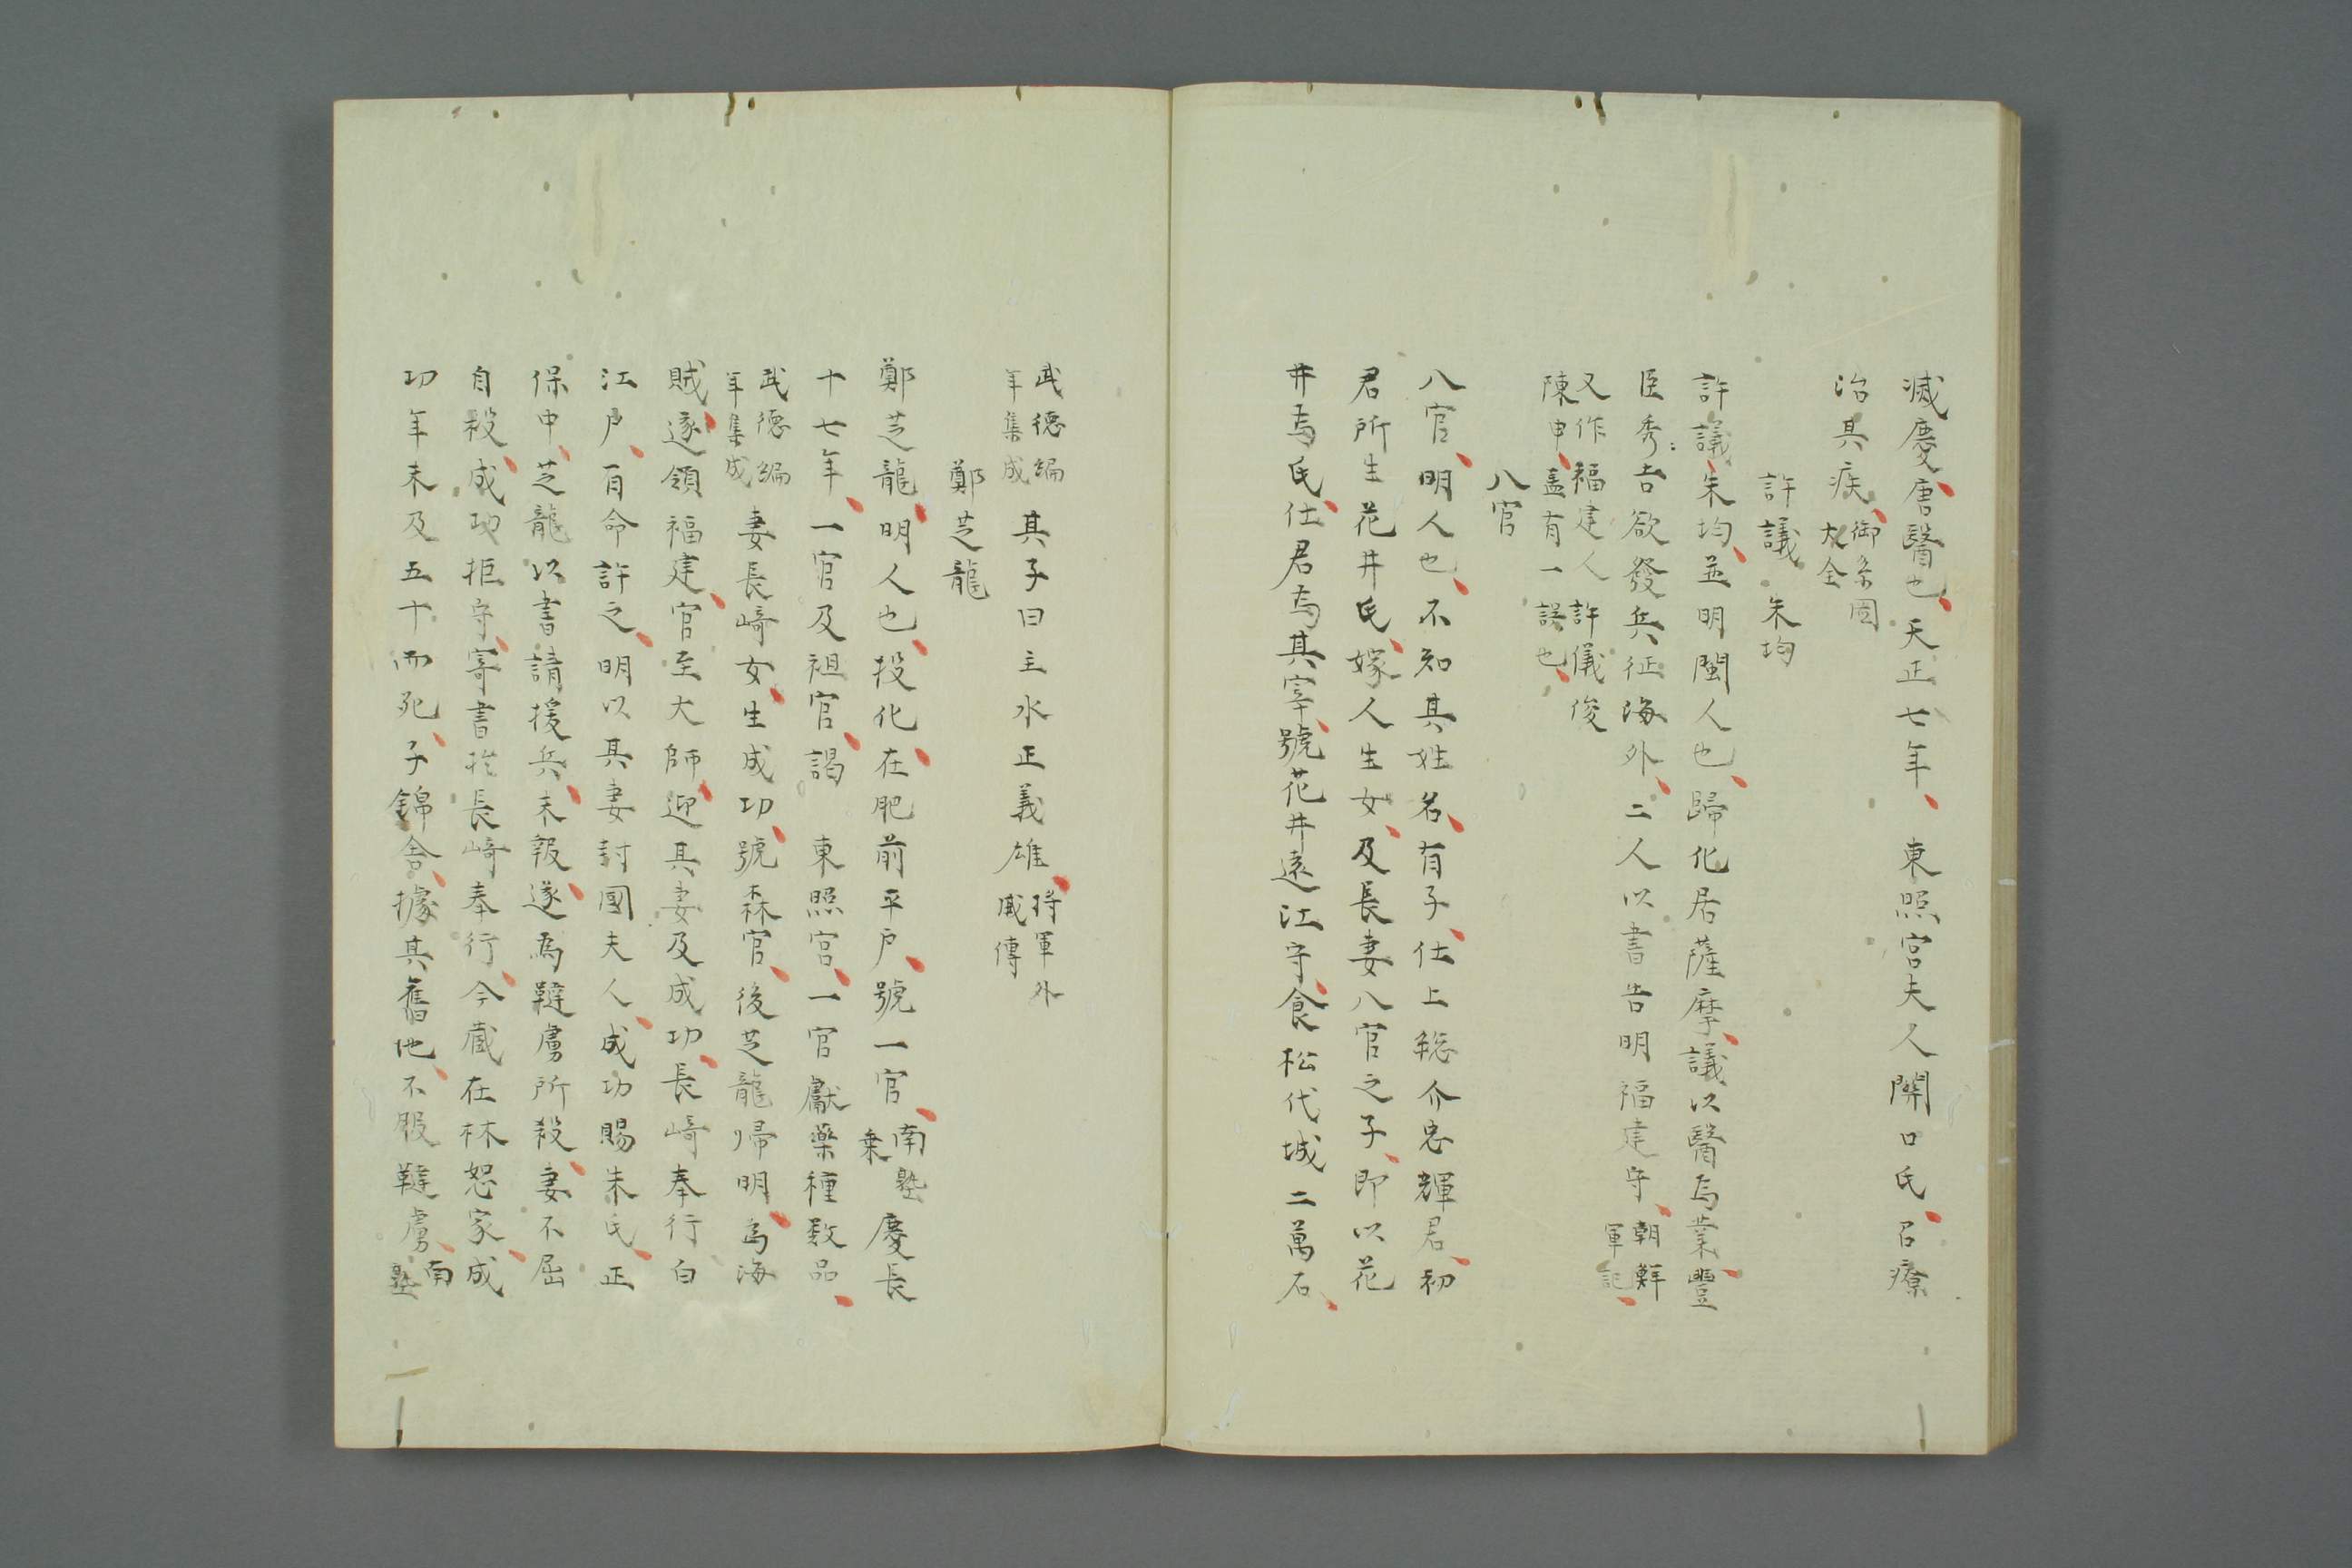 滅慶唐醫也天正七年　東照宮夫人關口氏召療
治其疾御系圖大全
許議　朱均
許議朱均並明閩人也歸化居薩摩議以醫爲業豐
臣秀吉欲發兵征海外二人以書告明福建守朝鮮軍記
又作福建人許儀俊陳申蓋有一誤也
八官
八官明人也不知其姓名有子仕上総介忠輝君初
君所生花井氏嫁人生女及長妻八官之子即以花
井爲氏仕君爲其宰號花井遠江守食松代城二萬石
武德編年集成　其子曰主水正義雄將軍外戚傳
鄭芝龍
鄭芝龍明人也投化在肥前平戶號一官南塾乗慶長
十七年一官及祖官謁　東照宮一官獻藥種数品
武德編年集成　妻長崎女生成功號森官後芝龍歸明爲海
賊遂領福建官至大師迎其妻及成功長崎奉行白
江戶有命許之明以其妻封國夫人成功賜朱氏正
保中芝龍以書請援兵未報遂爲韃虜所殺妻不屈
自殺成功拒守寄書於長崎奉行今蔵在林恕家成
功年未及五十而死子錦舎據其舊地不服韃虜南塾